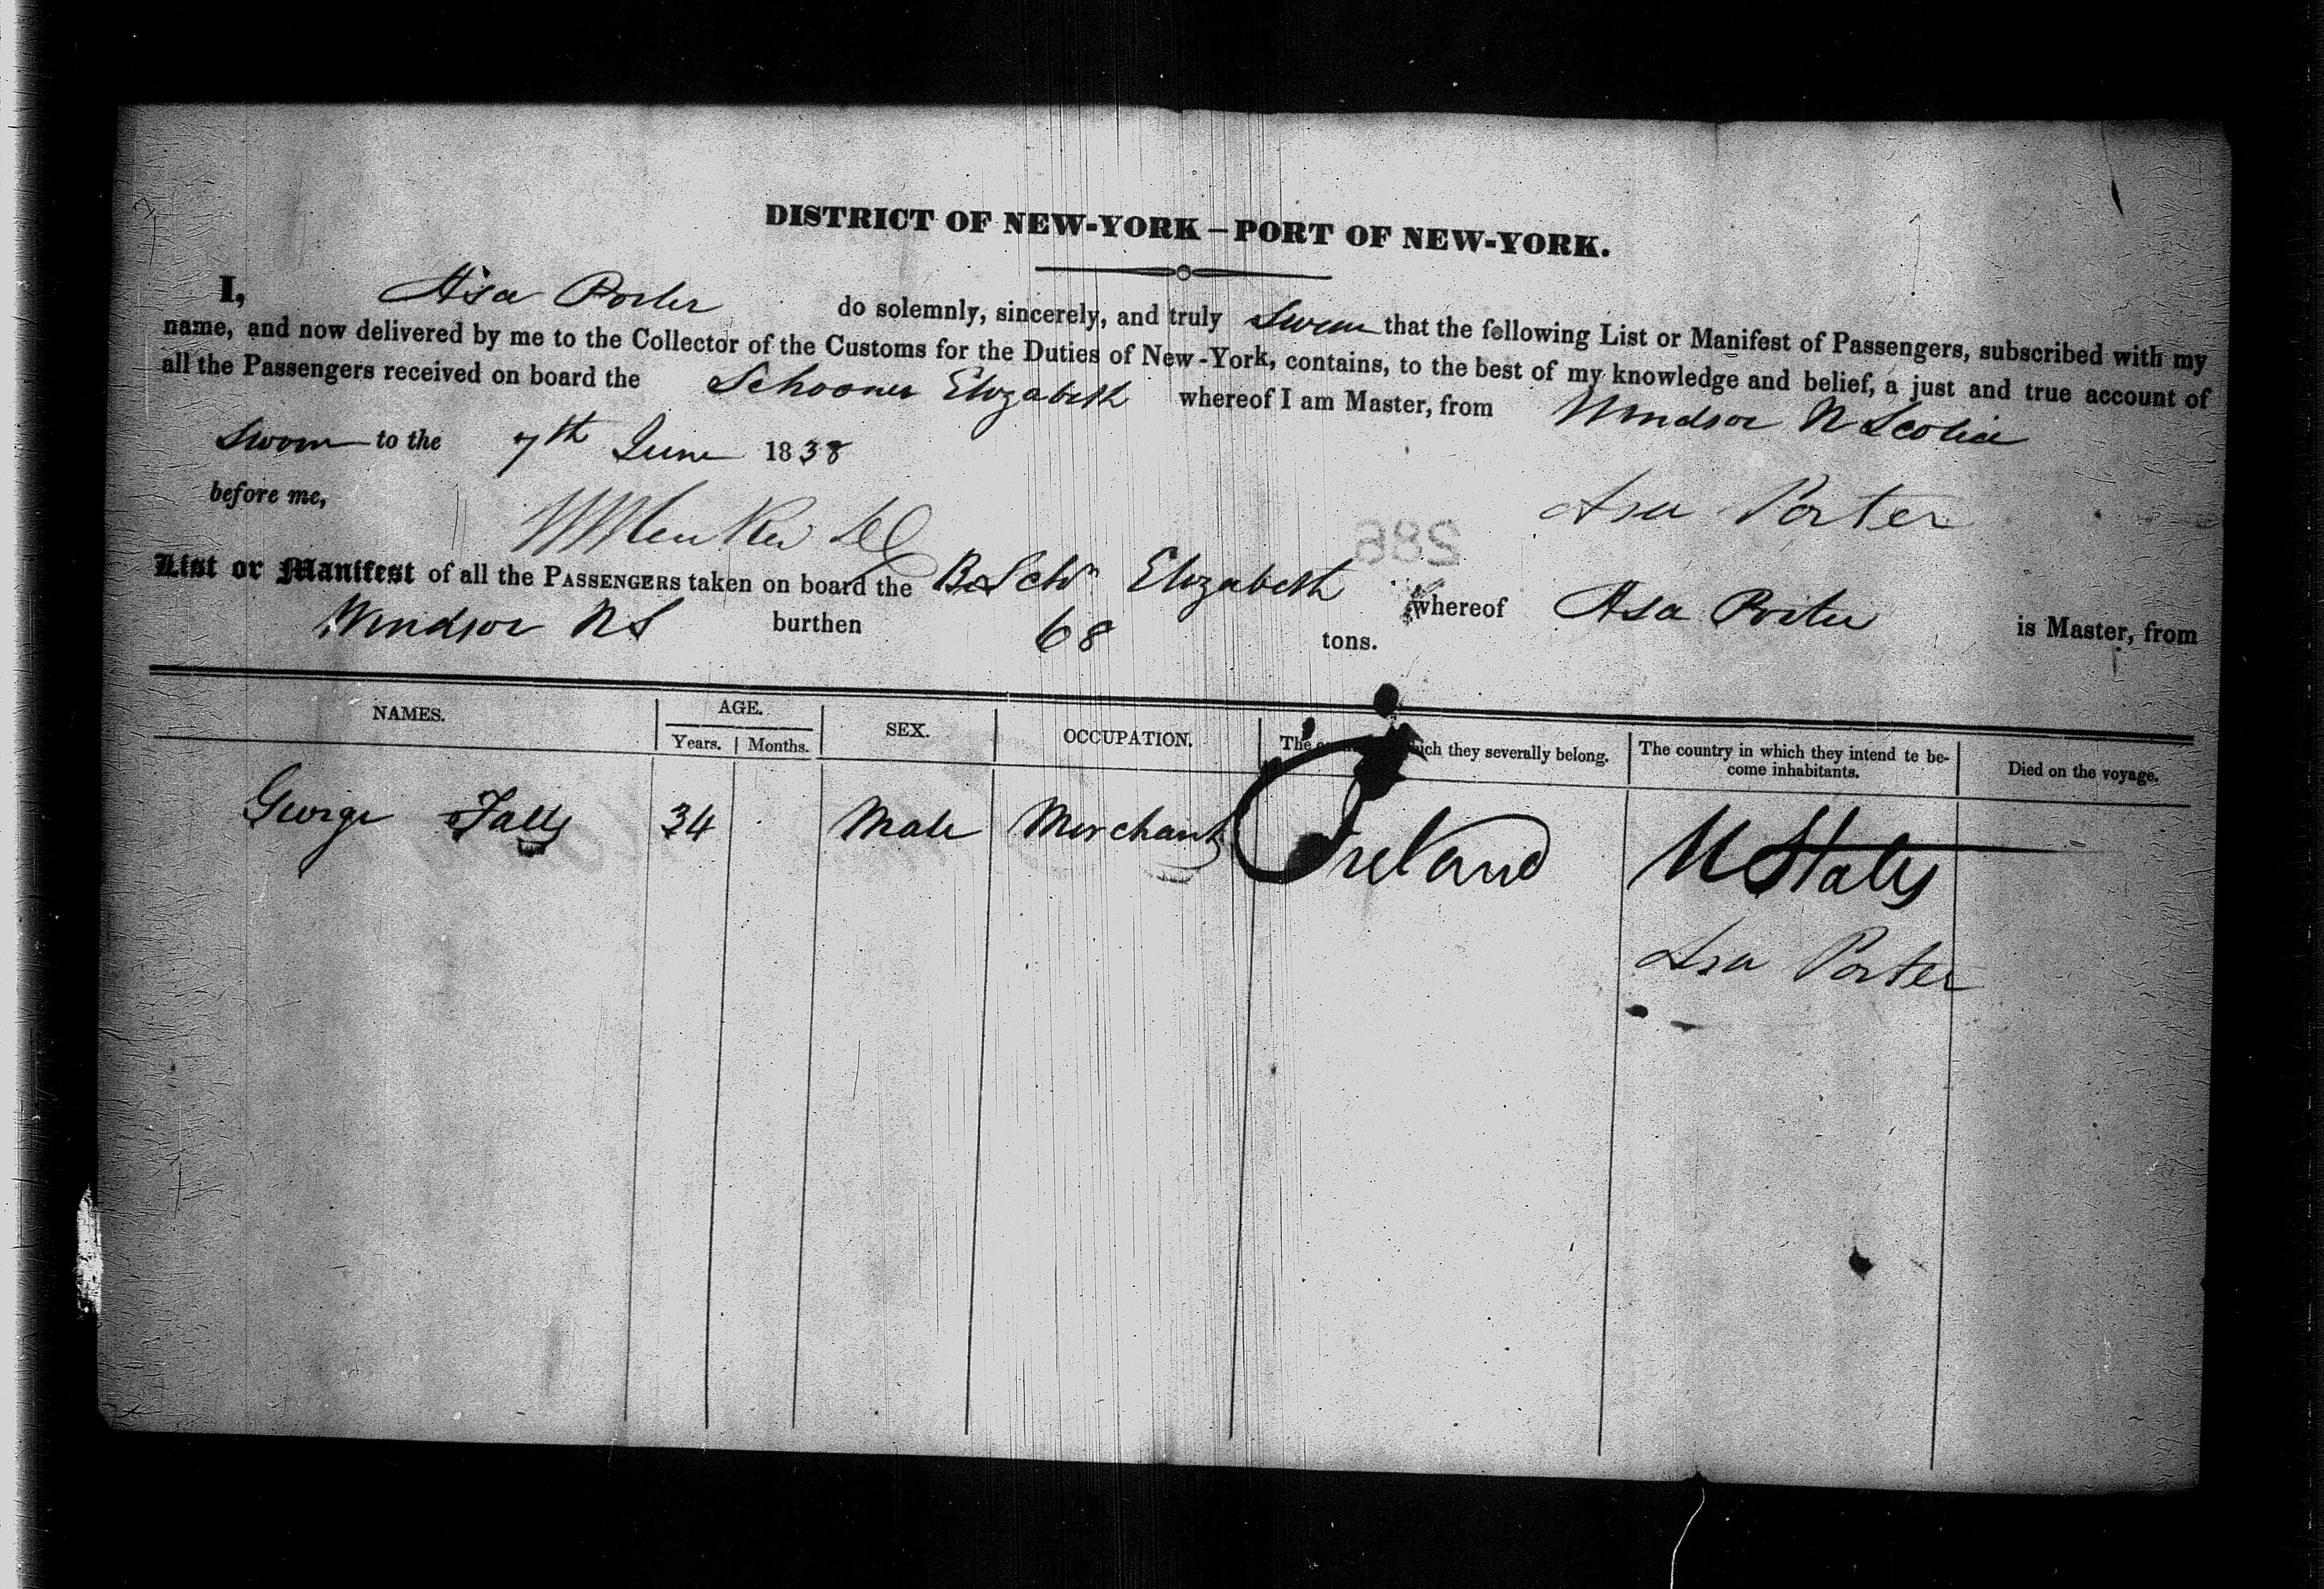 DISTRICT OF NEW-YORK—PORT OF NEW-YORK.
I, Asa Porter do solemnly, sincerely, and truly Swear that the following List or Manifest of Passengers, subscribed with my
name, and now delivered by me to the Collector of the Customs for the Duties of New-York, contains, to the best of my knowledge and belief, a just and true account of
all the Passengers received on board the Schooner Elizabeth whereof I am Master, from Windsor N Scotia
Sworn to the 7th June 1838
before me, Asa Porter
286
List or Manifest of all the PASSENGERS taken on board the Br Schr Elizabeth whereof Asa Porter is Master, from
Windsor NS burthen 68 tons.
NAMES. AGE. Years. Months. SEX. OCCUPATION. The which they severally belong. The country in which they intend te become inhabitants. Died on the voyage.
George Falls 34 Male Merchant Ireland U States
Asa Porter